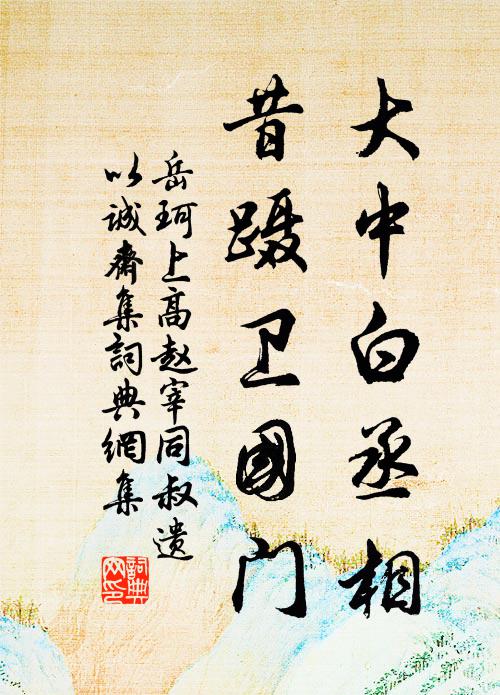 大中白丞相
昔蹑卫國门
岳珂上高赵宰同叔遗
以诚齋集詞典網集
詞典网印